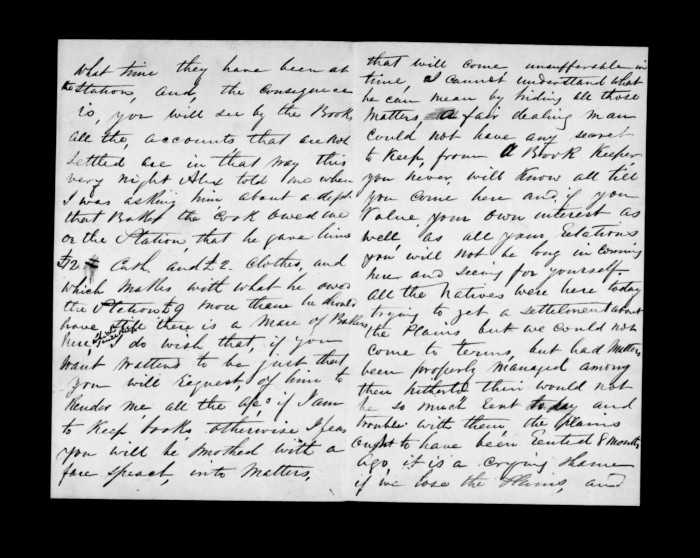 what time they have been at
the Stations, and, the consequence
is, you will see by the Books
all the, accounts that are not
settled are in that way this
very night Alex told me when
I was asking him about a debt
that Baker the Cook owed me
or the Station, that he gave him
£2 Cash and £2. Clothes, and
which makes with what he owes
the Station £9 more then he should
have, there is a Man of Bakers
here, I do wish that, if you
want matters to be just that
you will Request, of him to
Render me all the a/cs if I am
to Keep books, otherwise I fear
you will be smothed with a
fare speach, into Matters,
that will come unsufferable in
time, I cannot understand what
he can mean by hiding all those
Matters a fair dealing man
could not have any secret
to Keep, from A Book Keeper,
you never, will Know all till
you come here and if you
Value your own interest as
well as all your Relations
you will not be long in coming
here and seeing for yourself.
All the Natives were here today
trying to get a settelment about
the Plains but we could not
come to terms, but had Matters
been properly managed among
them hitherto their would not
be so much Rent to day and
trouble with them, the Plains
ought to have been Rented 8 months
ago, it is a crying shame
if we lose the Plains, and